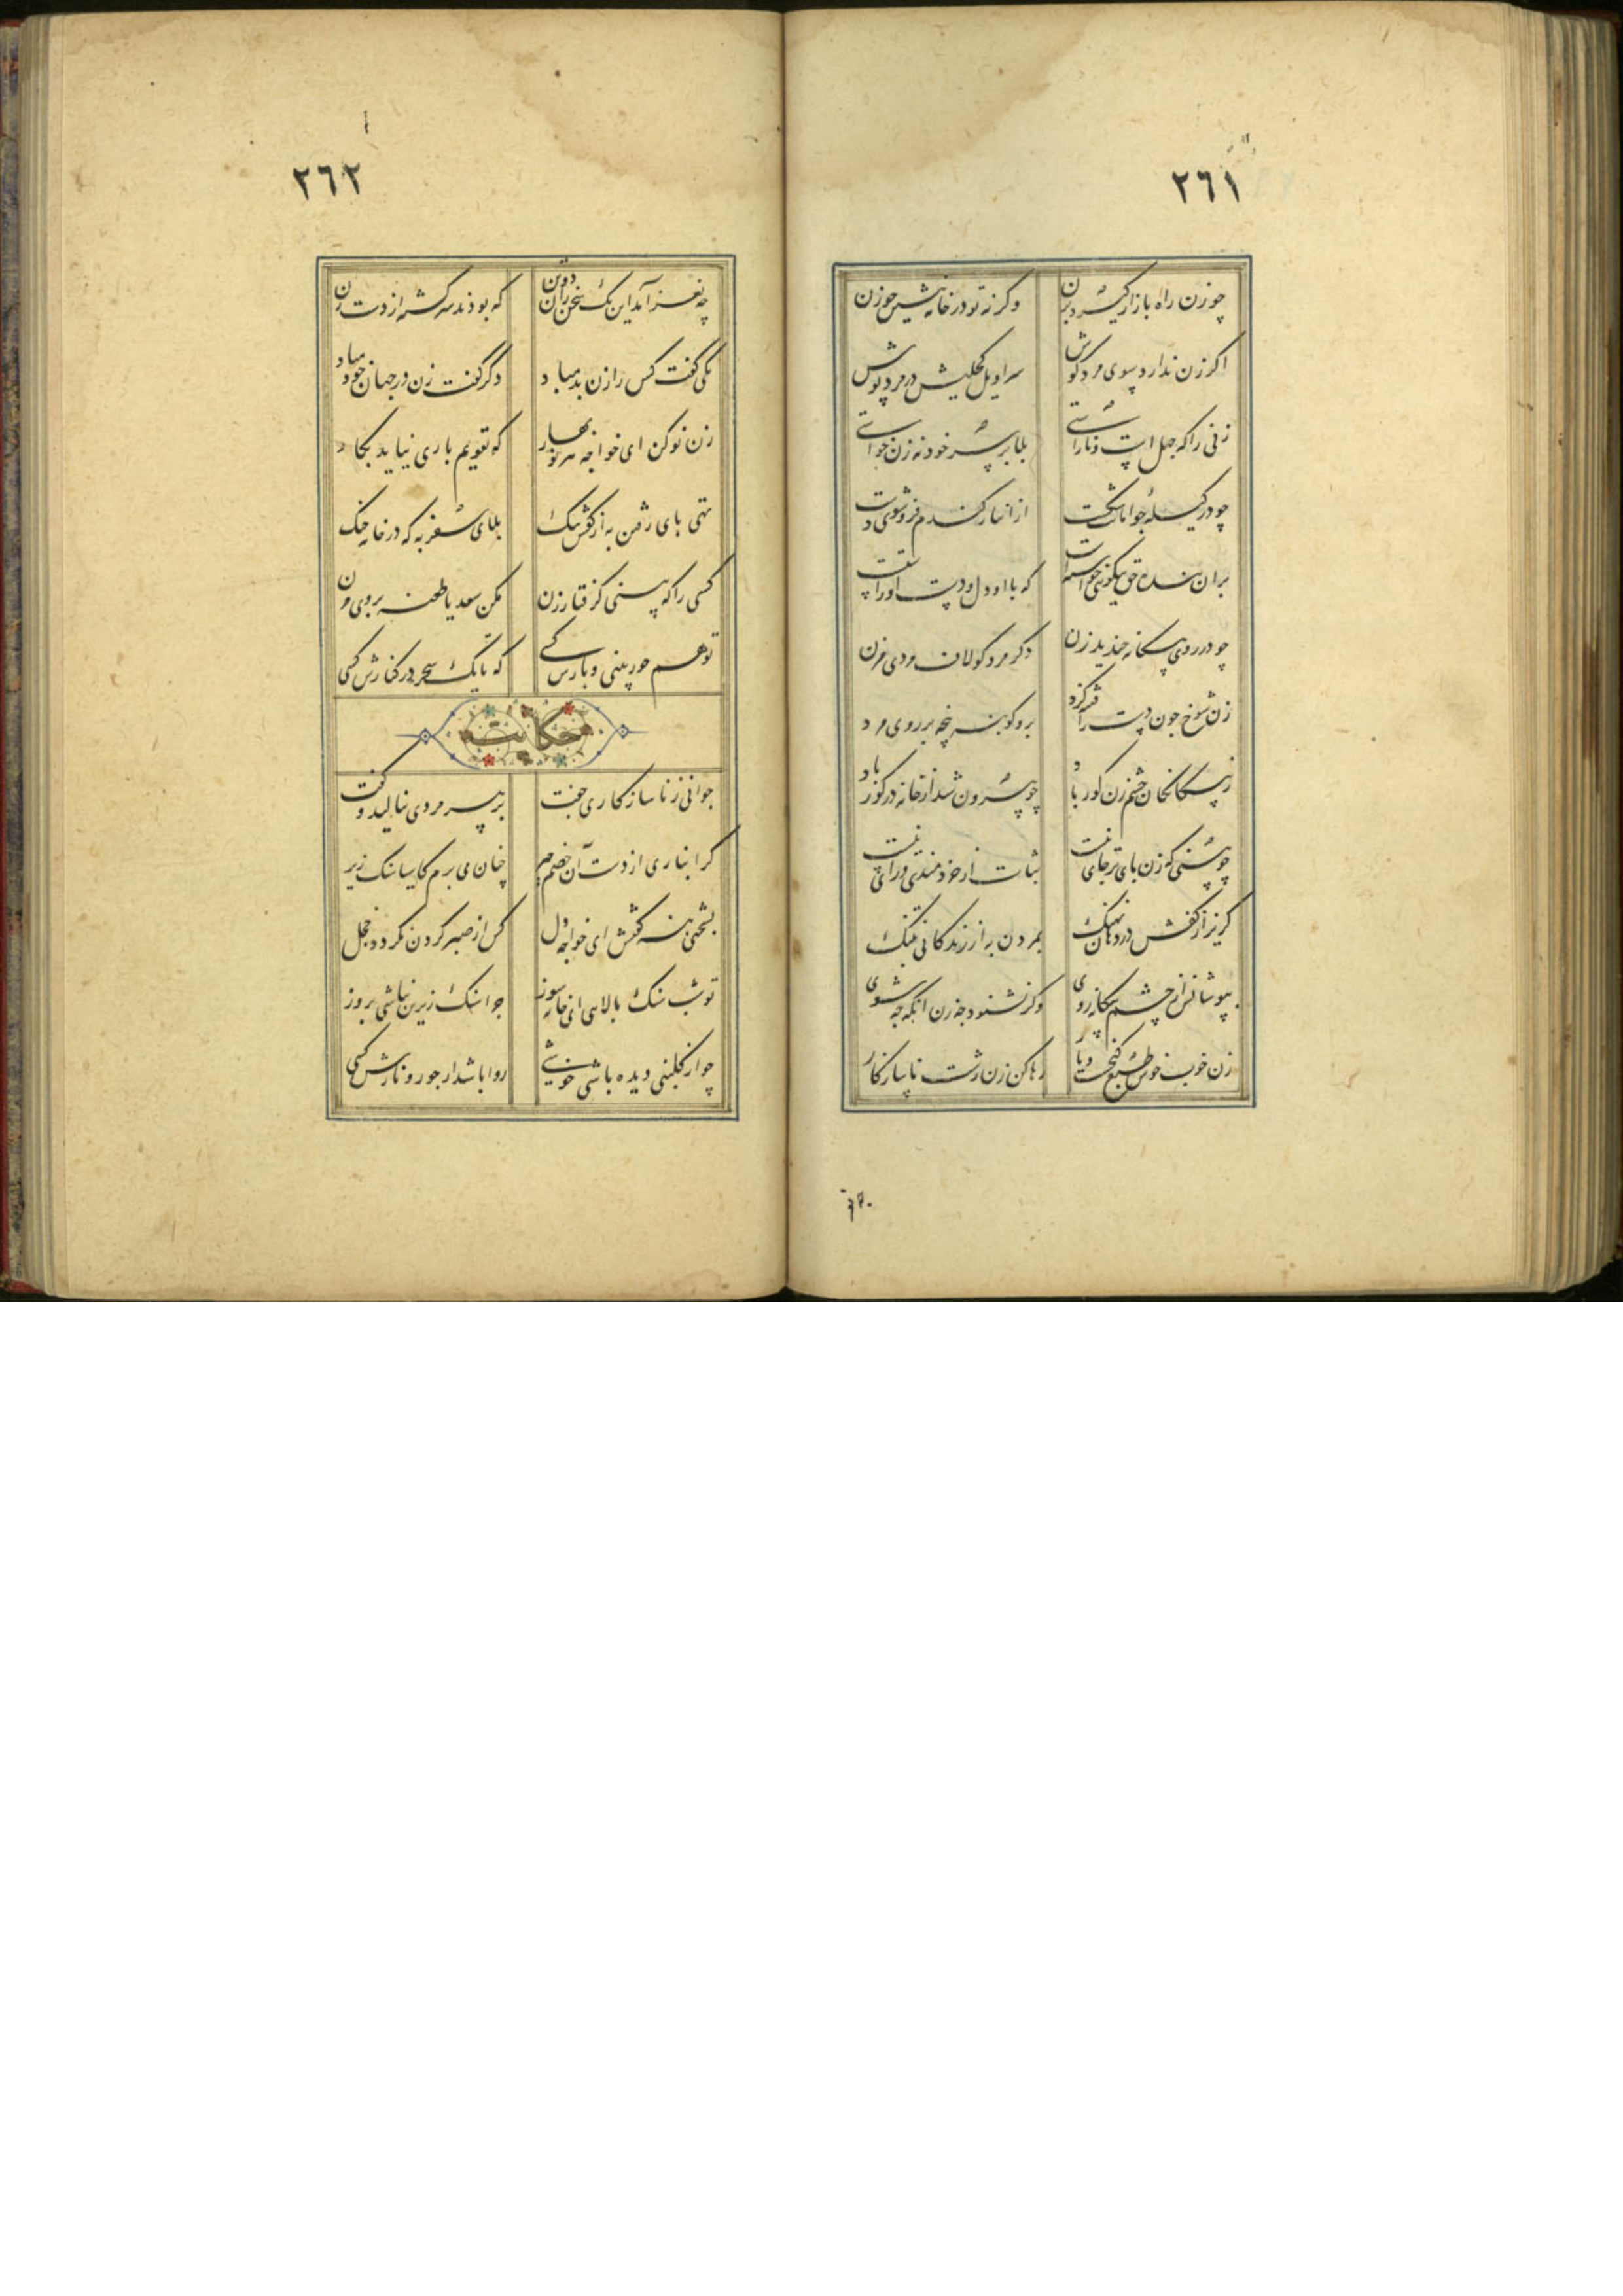 ٢٦١
چو زن راه بازار گیرد بزن وگرنه تو در خانه بنشین چو زن
اگر زن ندارد سوی مرد گوش سراویل کحلیش در مرد پوش
زنی را که جهل است و ناراستی بلا بر سر خود نه زن خواستی
چو در کیله جو امانت شکست از انبار گندم فرو شوی دست
بر آن بنده حق نیکوئی خواستست که با او دل و دست او راستست
چو در روی بیگانه خندید زن دگر مرد گو لاف مردی مزن
زن شوخ چون دست در قلیه کرد برو گو بنه پنجه بر روی مرد
ز بیگانگان چشم زن کور باد چو بیرون شد از خانه در گور باد
چو بینی که زن پای بر جای نیست ثبات از خردمندی و رای نیست
گریز از کفش در دهان نهنگ بمردن به از زندگانی بننگ
بپوشانش از چشم بیگانه روی وگر نشنود چه زن آنگه چه شوی
زن خوب خوش طبع گنجست و یار رها کن زن زشت ناسازگار
٢٦٢
چه نغز آمد این یک سخن زان دو تن که بودند سرگشته از دست زن
یکی گفت کس را زن بد مباد دگر گفت زن در جهان خود مباد
زن نو کن ای خواجه هر نوبهار که تقویم پاری نیاید بکار
تهی پای رفتن به از کفش تنگ بلای سفر به که در خانه جنگ
کسی را که بینی گرفتار زن مکن سعدیا طعنه بر وی مزن
تو هم جور بینی و بارش کشی که یا یک سحر در کنارش کشی
حکایت
جوانی ز ناسازگاری جفت بر پیر مردی بنالید و گفت
گرانباری از دست آن خصم چیر چنان می برم کاسیا سنگ زیر
بسختی بنه گفتش ای خواجه دل کس از صبر کردن نگردد خجل
تو شب سنگ بالایی ای خانه سوز چرا سنگ زیرین نباشی بروز
چو از گلبنی دیده باشی خوشی روا باشد ار جور و نازش کشی